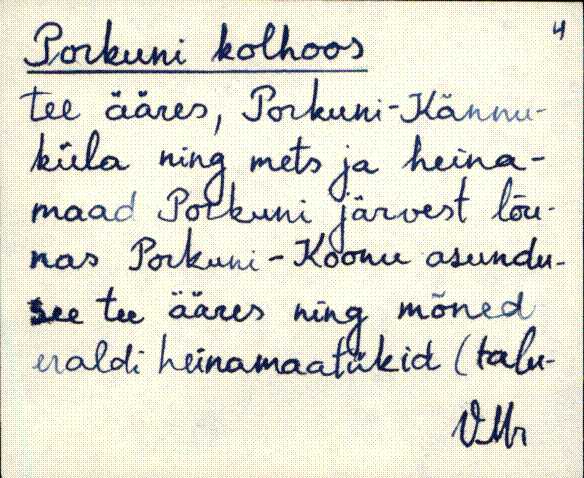 4
Porkuni kolhoos
tee ääres, Porkuni-Kännu-
küla ning mets ja heina-
maad Porkuni järvest lõu-
nas Porkuni-Koonu asundu-
see tee ääres ning mõned
eraldi heinamaatükid (talu-
VMr